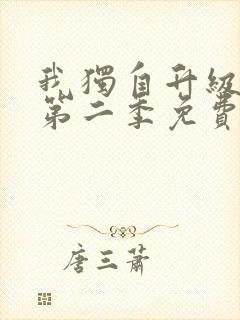 我獨自升級
第二季免費
唐三蕭